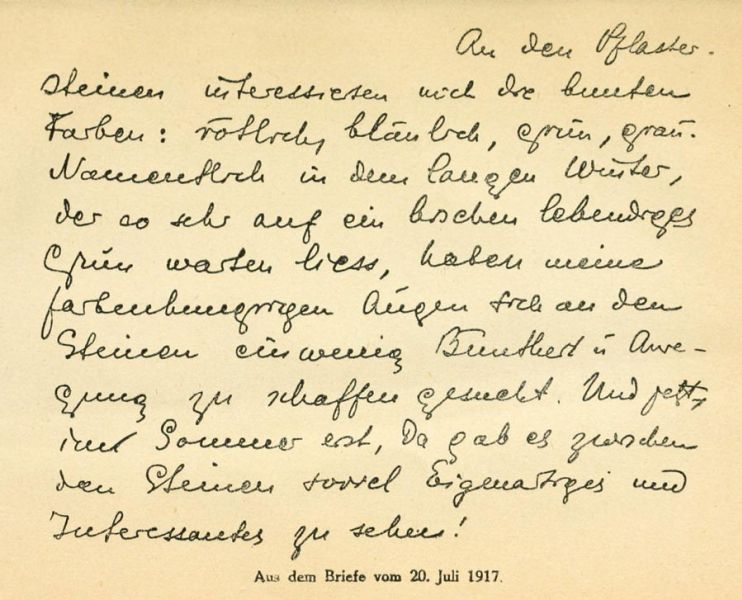 An den Pflaster-
steinen interessierten mich die bunten
Farben: rötlich, bläulich, grün, grau.
Namentlich in dem langen Winter,
der so sehr auf ein bischen lebendiges
Grün warten liess, haben meine
farbenhungrigen Augen sich an den
Steinen ein wenig Buntheit u Anre-
gung zu schaffen gesucht. Und jetzt,
im Sommer erst, da gab es zwischen
den Steinen soviel Eigenartiges und
Interessantes zu sehen!
Aus dem Briefe vom 20. Juli 1917.